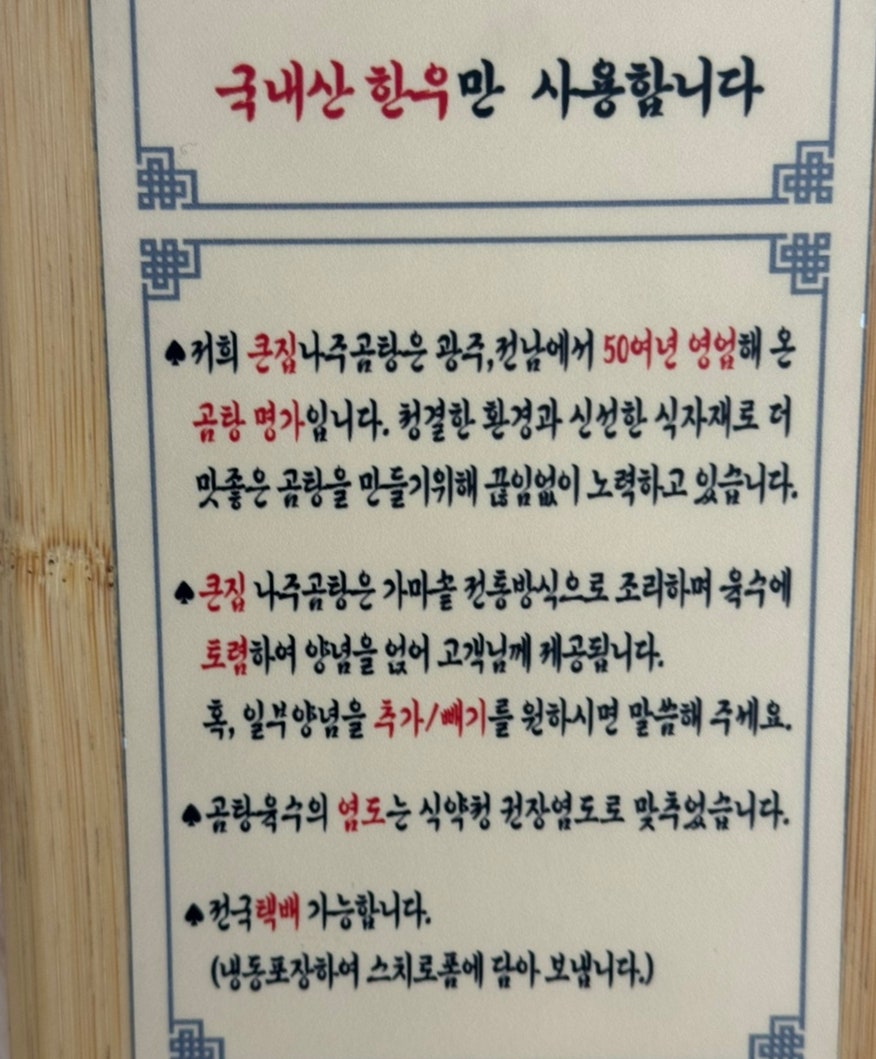 국내산 한우만 사용합니다
♠저희 큰집나주곰탕은 광주,전남에서 50여년 영업해 온
곰탕 명가입니다. 청결한 환경과 신선한 식자재로 더
맛좋은 곰탕을 만들기위해 끊임없이 노력하고 있습니다.
♠큰집 나주곰탕은 가마솥 전통방식으로 조리하며 육수에
토렴하여 양념을 얹어 고객님께 제공됩니다.
혹, 일부양념을 추가/빼기를 원하시면 말씀해 주세요.
♠곰탕육수의 염도는 식약청 권장염도로 맞추었습니다.
♠전국택배 가능합니다.
(냉동포장하여 스치로폼에 담아 보냅니다.)